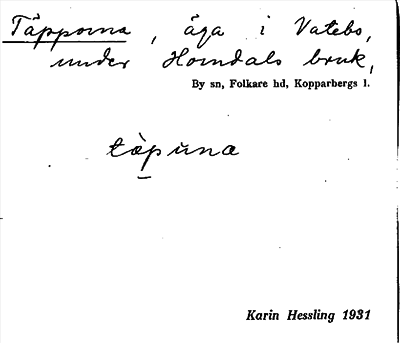 Täpporna, äga i Vatebo,
under Horndals bruk,
By sn, Folkare hd, Kopparbergs l.
tàpuna
Karin Hessling 1931